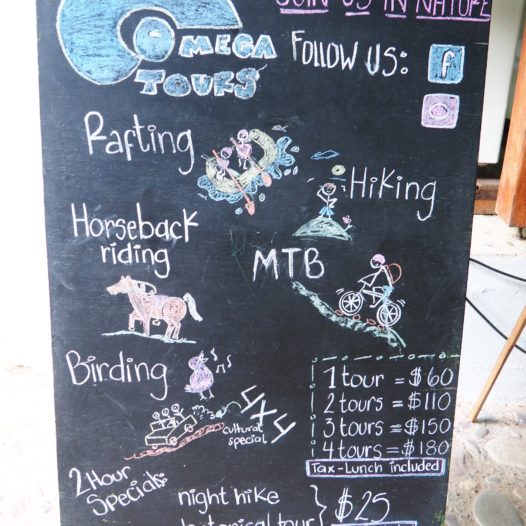 JOIN US IN NATURE
OMEGA
TOURS
FOLLOW US:
f
Rafting
Hiking
Horseback
riding
MTB
Birding
4x4
cultural
special
1 tour = $60
2 tours = $110
3 tours = $150
4 tours = $180
Tax-Lunch included
2 Hour
Specials:
night hike
historical tour
$25